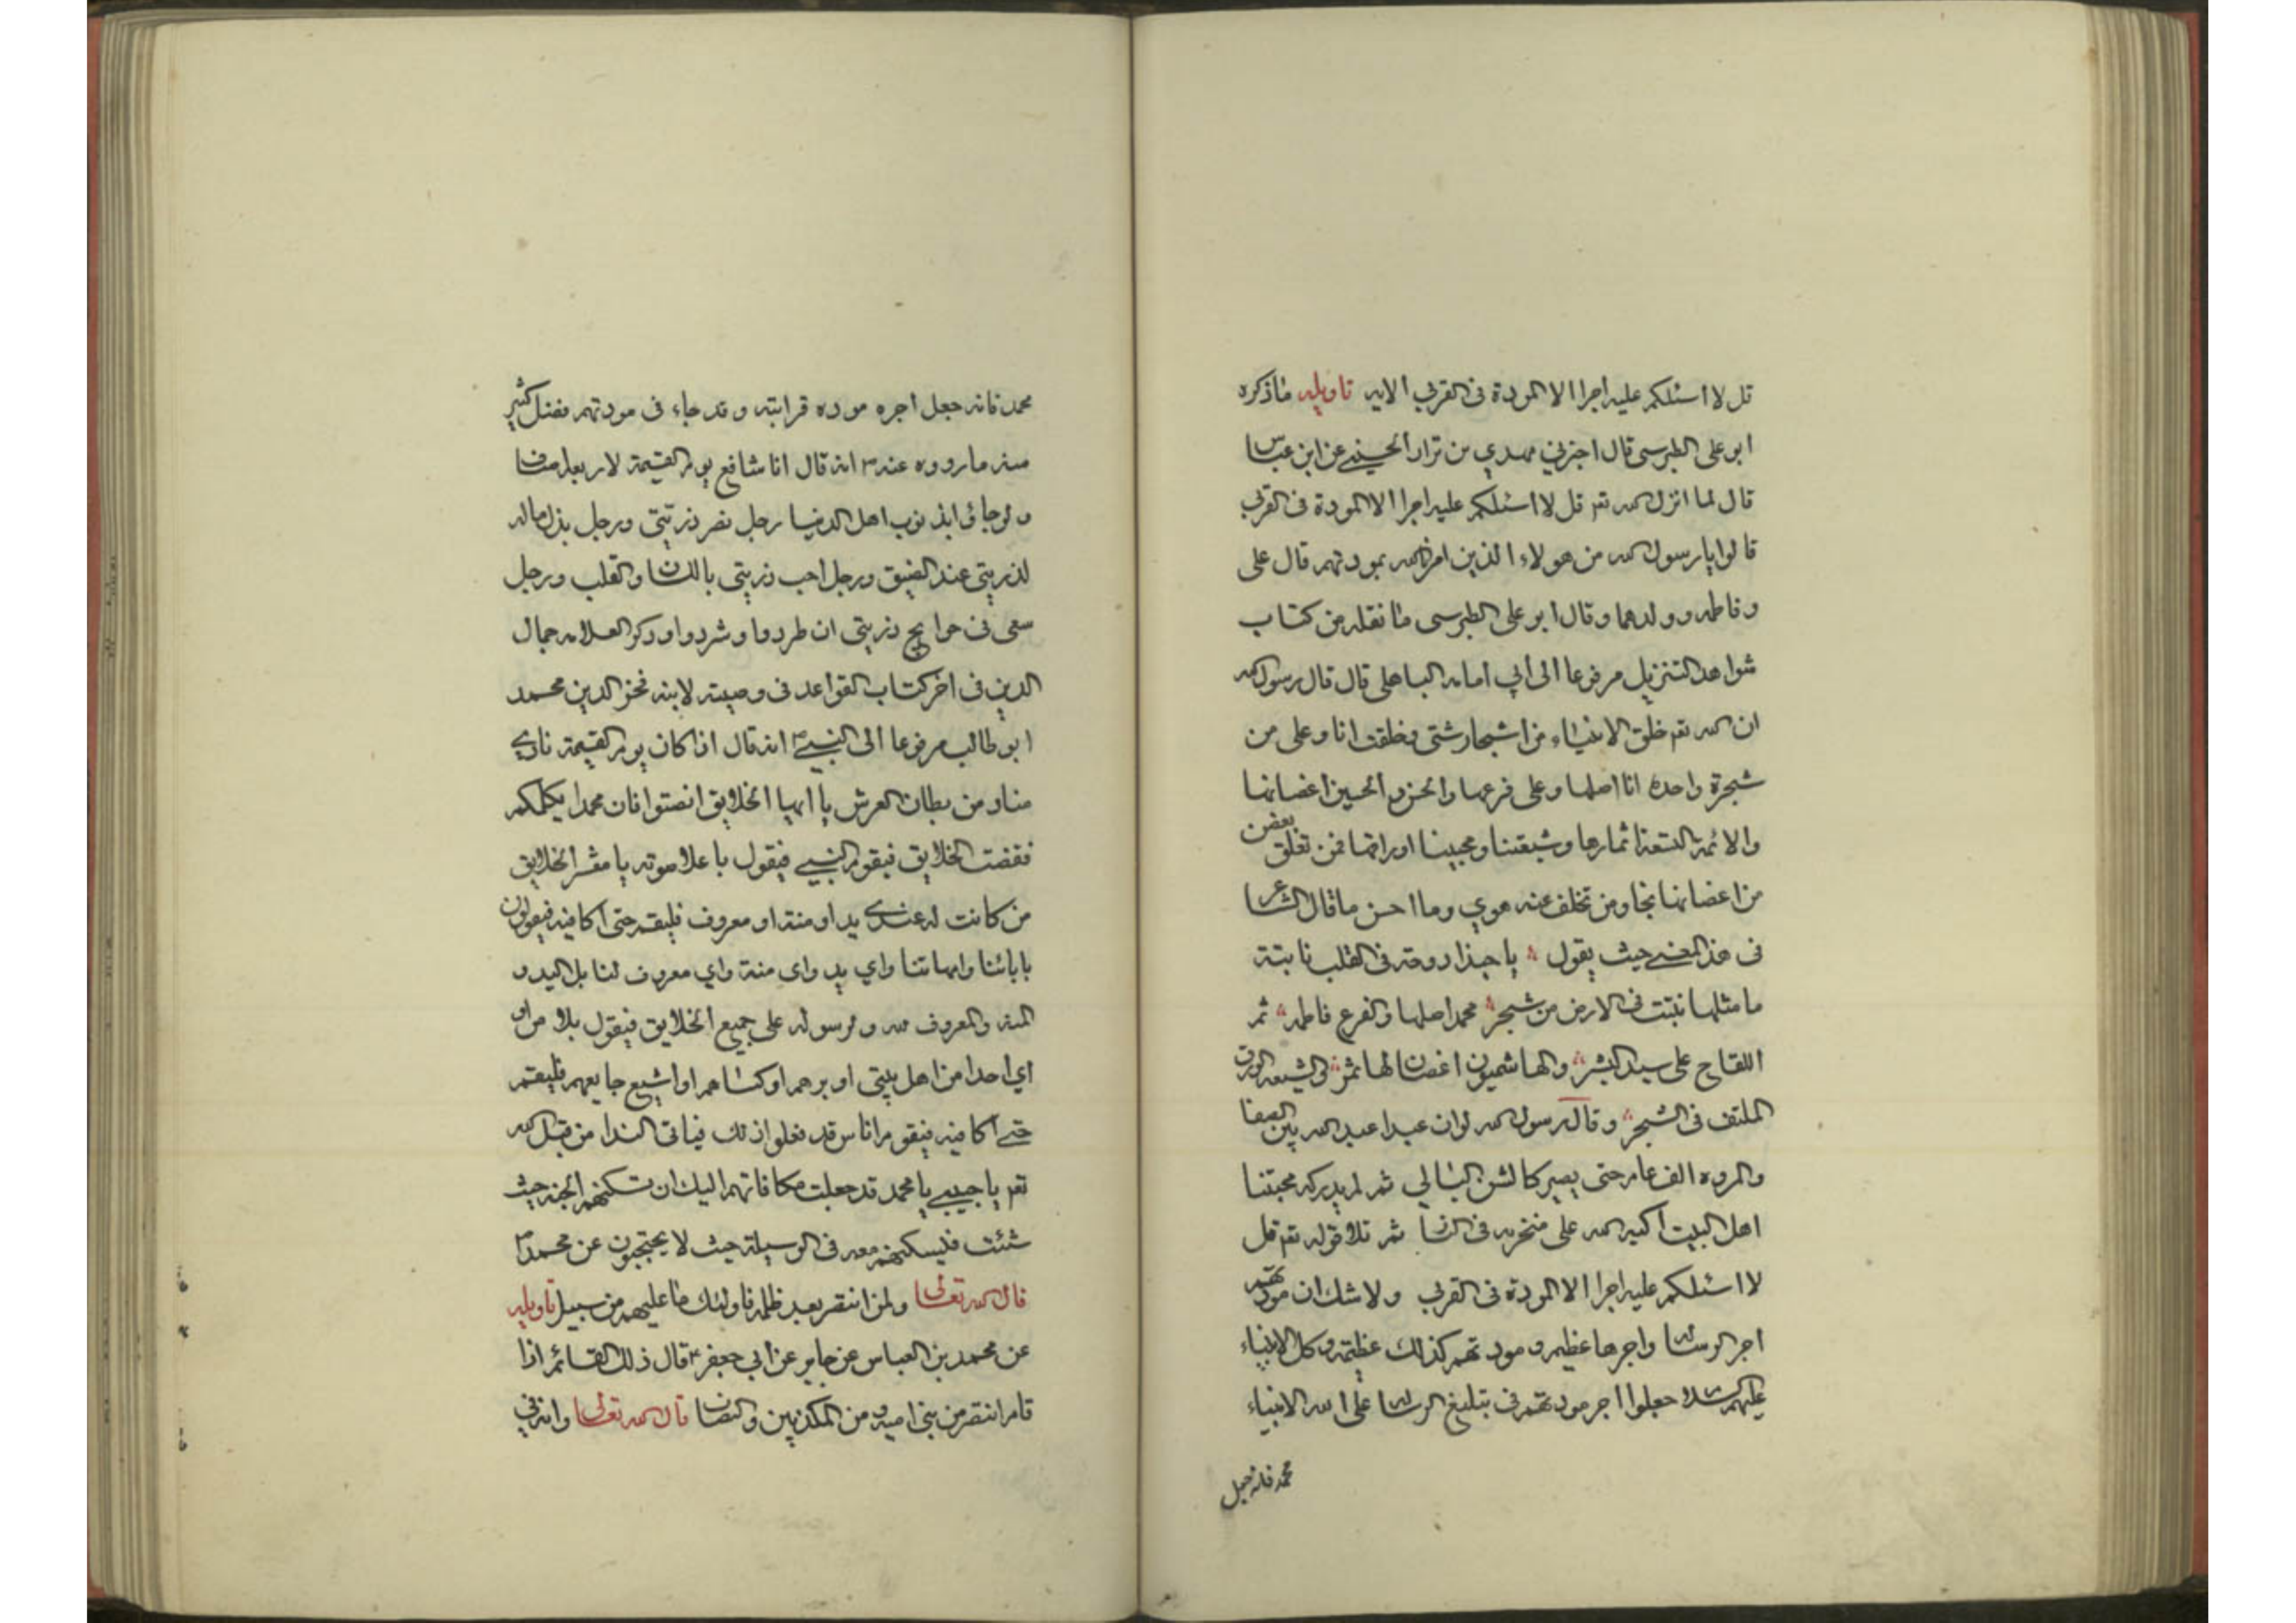 قل لا اسئلكم عليه اجرا الا المودة فى القربى الايه تاويله ما ذكره
ابو على الطبرسى قال اخبرنى مهدي بن نزار الحسينى عن ابن عباس
قال لما انزل الله تعم قل لا اسئلكم عليه اجرا الا المودة فى القربى
قالوا يا رسول الله من هولاء الذين امرنا الله بمودتهم قال على
و فاطمه و ولدهما و قال ابو على الطبرسى ما نقله من كتاب
شواهد التنزيل مرفوعا الى أبي امامه الباهلى قال قال رسول الله
ان الله تعم خلق الانبياء من اشجار شتى و خلقت انا و على من
شجرة واحدة انا اصلها و على فرعها و الحسن و الحسين اغصانها
والائمة التسعة اثمارها و شيعتنا و محبينا اوراقها فمن تعلق بغصن
من اغصانها نجا و من تخلف عنه هوي وما احسن ما قال الشاعر
فى هذا المعنى حيث يقول يا حبذا دوحة فى القلب نابتة
ما مثلها نبتت فى الارض من شجر محمد اصلها و الفرع فاطمه ثم
اللقاح على سيد البشر و الهاشميون اغصان لها ثمر و الشيعه الورق
الملتف فى الشجر و قال رسول الله لو ان عبدا عبد الله بين الصفا
والمروه الف عام حتى يصير كالشن البالي ثم لم يدركه محبتنا
اهل البيت اكبه الله على منخريه فى النار ثم تلا قوله تعم قل
لا اسئلكم عليه اجرا الا المودة فى القربى و لا شك ان مودتهم
اجر الرسالة و اجرها عظيم و مودتهم كذلك عظيمة و كل الانبياء
عليهم السلام جعلوا اجر مودتهم فى تبليغ الرسالة على الله الا نبياء
محمد فانه جعل
محمد فانه جعل اجره موده قرابته و قد جاء فى مودتهم فضل كثير
منه ما رووه عنه ص انه قال انا شافع يوم القيمة لاربعة اصناف
و لو جائوا بذنوب اهل الدنيا رجل نصر ذريتى و رجل بذل ماله
لذريتي عند الضيق و رجل احب ذريتى باللسان و القلب و رجل
سعى فى حوايج ذريتى ان طردوا و شردوا و ذكر العلامه جمال
الدين فى اخر كتاب القواعد فى وصيته لابنه فخر الدين محمد
ابو طالب مرفوعا الى النبي ص انه قال اذا كان يوم القيمة نادى
مناد من بطان العرش يا ايها الخلايق انصتوا فان محمدا يكلمكم
فنصت الخلايق فيقوم النبي فيقول باعلا صوته يا معشر الخلايق
من كانت له عندي يد او منة او معروف فليقم حتى اكافيه فيقولون
بابائنا وامهاتنا واي يد واى منة واي معروف لنا بل اليد و
المنة و المعروف لله و لرسوله على جميع الخلايق فيقول بلا من اوى
اي احدا من اهل بيتى او برهم او كساهم او اشبع جايعهم فليقم
حتى اكافيه فيقوم اناس قد فعلوا ذلك فياتى الندا من قبل الله
تعم يا حبيبي يا محمد قد جعلت مكافاتهم اليك ان تسكنهم الجنة حيث
شئت فليسكنهم معه فى الوسيلة حيث لا يحتجبون عن محمد ص
قال الله تعالى و لمن انتصر بعد ظلمه فاولئك ما عليهم من سبيل تاويله
عن محمد بن العباس عن جابر عن ابي جعفر ع قال ذلك القائم اذا
قام انتصر من بنى اميه و من المكذبين و النصاب قال الله تعالى و انه فى